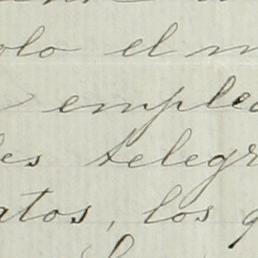 olo el m
emplea
es telegr
atos, los q